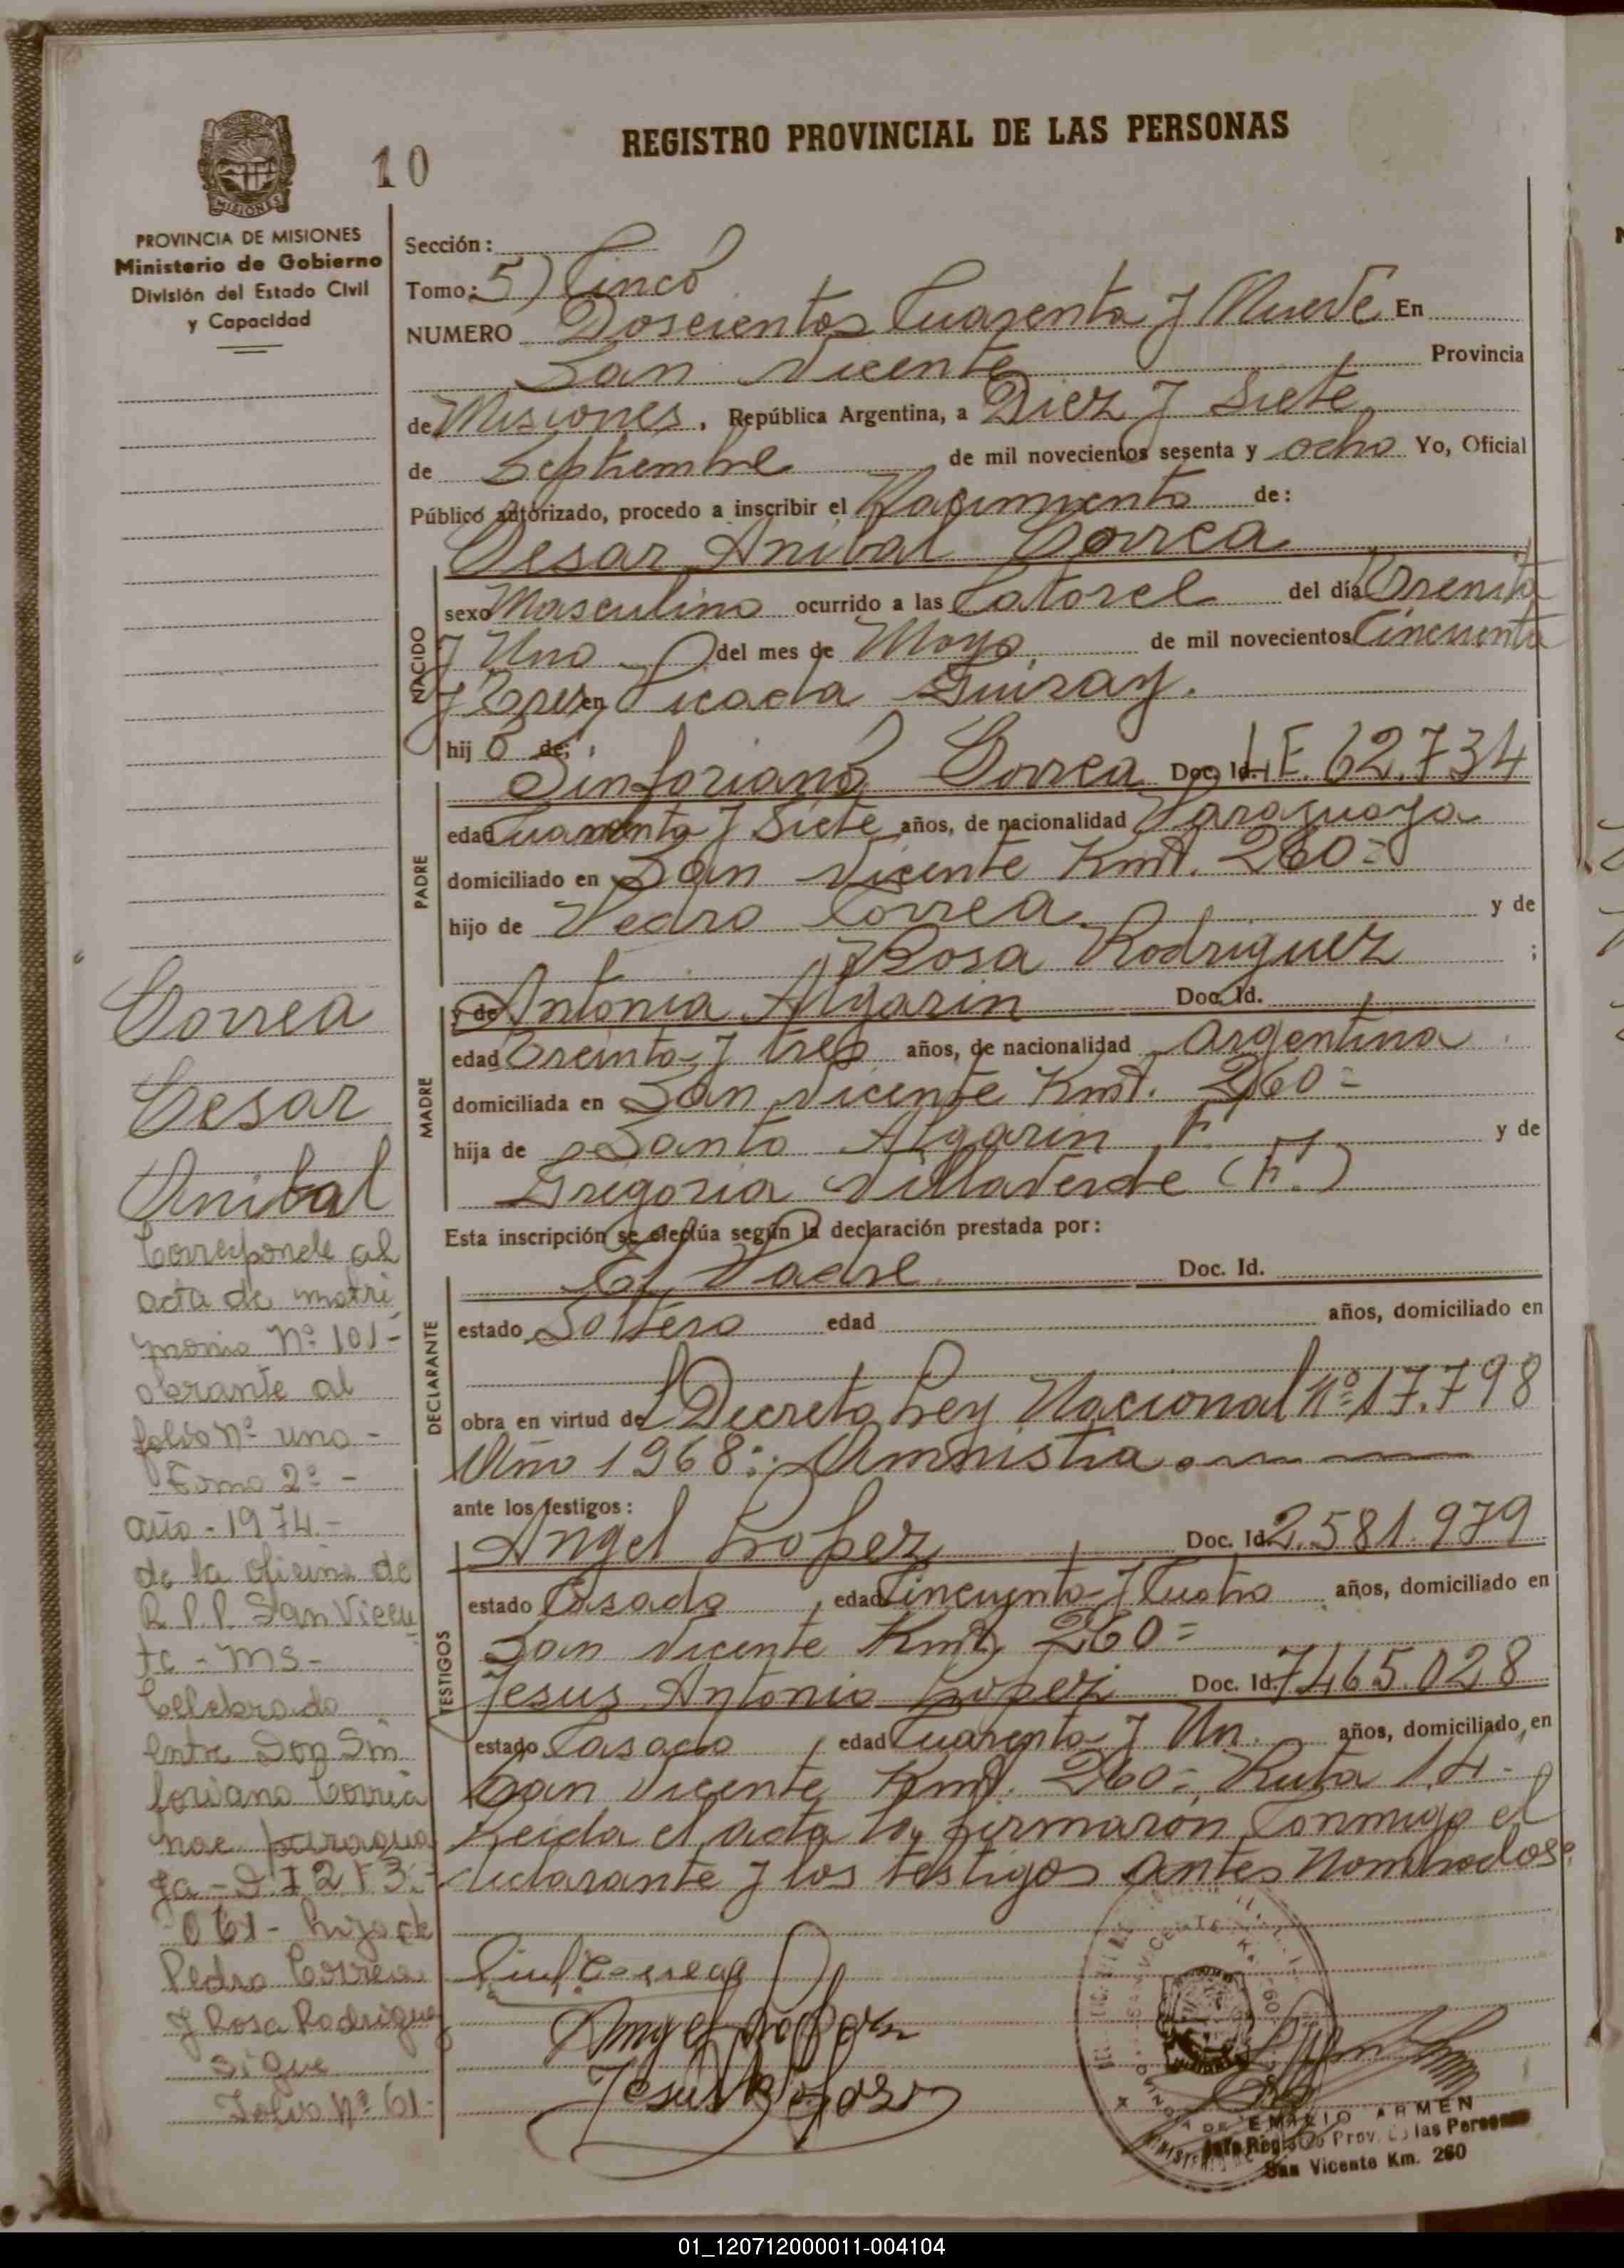 REGISTRO PROVINCIAL DE LAS PERSONAS
10
PROVINCIA DE MISIONES
Ministerio de Gobierno
División del Estado Civil
y Capacidad
Sección:
Tomo: 5) Cinco
NUMERO Doscientos Cuarenta y Nueve En
San Vicente Provincia
de Misiones, República Argentina, a Diez y Siete
de Septiembre de mil novecientos sesenta y ocho Yo, Oficial
Público autorizado, procedo a inscribir el Nacimiento de:
Cesar Anibal Correa
NACIDO
sexo Masculino ocurrido a las Catorce del día Treinta
y Uno del mes de Mayo de mil novecientos Cincuenta
y Tres en Picada Guiray.
hijo de:
Sinforiano Correa Doc. Id. I.E. 62.734
PADRE
edad Cuarenta y Siete años, de nacionalidad Paraguaya
domiciliado en San Vicente Kmt. 260=
hijo de Pedro Correa y de
Rosa Rodriguez ;
MADRE
y de Antonia Algarin Doc. Id.
edad Treinta y tres años, de nacionalidad Argentina
domiciliada en San Vicente Kmt. 260=
hija de Santo Algarin F. y de
Gregoria Villaverde (F.)
Esta inscripción se efectúa según la declaración prestada por:
DECLARANTE
El Padre Doc. Id.
estado Soltero edad años, domiciliado en
obra en virtud del Decreto Ley Nacional Nº 17.798
Año 1968: Amnistia
ante los testigos:
TESTIGOS
Angel Lopez Doc. Id. 2.581.979
estado Casado, edad Cincuenta y Cuatro años, domiciliado en
San Vicente Kmt. 260=
Jesus Antonio Lopez Doc. Id. 7465.028
estado Casado, edad Cuarenta y Un. años, domiciliado en
San Vicente Kmt. 260= Ruta 14.-
Leida el acta la firmaron Conmigo el
declarante y los testigos antes Nombrados.
Sinf Correa
Angel Lopez
Jesus A Lopez
EMILIO ARMEN
Jefe Registro Prov. de las Personas
San Vicente Km. 260
Correa
Cesar
Anibal
Corresponde al
acta de matri
monio Nº 101-
obrante al
folio nº uno -
Tomo 2º -
año - 1974.-
de la oficina de
R.P.P. San Vicen
te - Ms -
Celebrado
entre Don Sin
foriano Correa
nac paragua
ya -
061 - hijo de
Pedro Correa
y Rosa Rodriguez
sigue
Folio Nº 61-
01_120712000011-004104